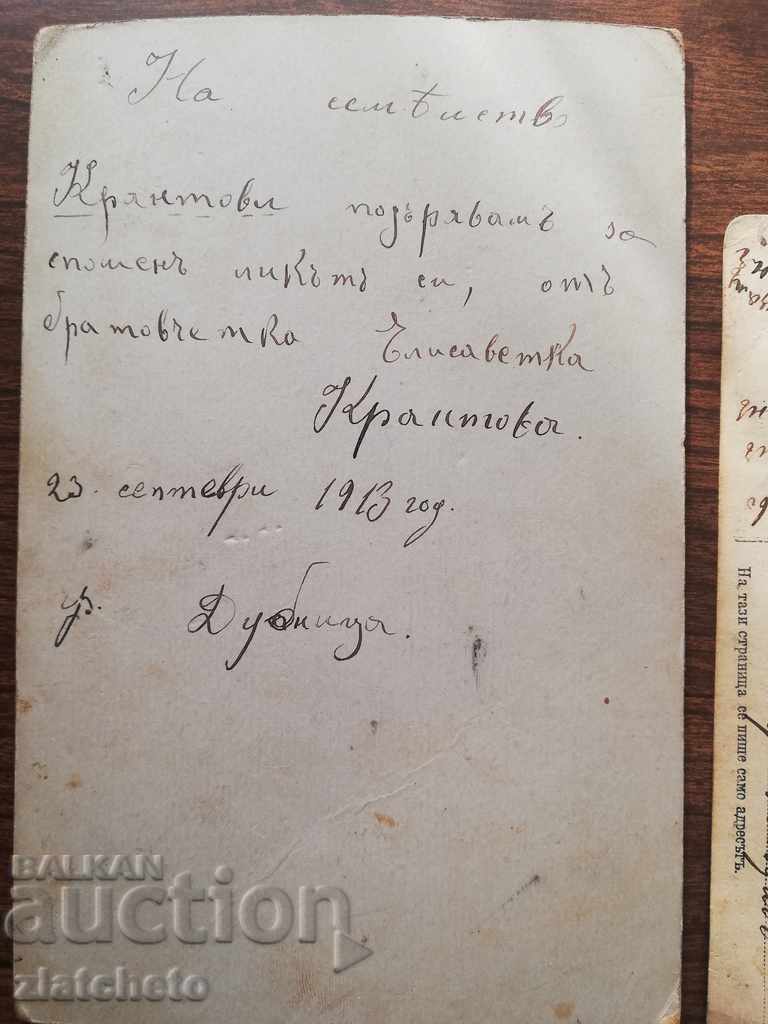 На семѣлство
Крянтови подъврявамъ за
споменъ ликътъ си, отъ
братовчетка Елисаветка
Крантова.
23. септеври 1913 год.
гр. Дубница.
На тази страница се пише само адресътъ.
BALKAN
auction
zlatcheto